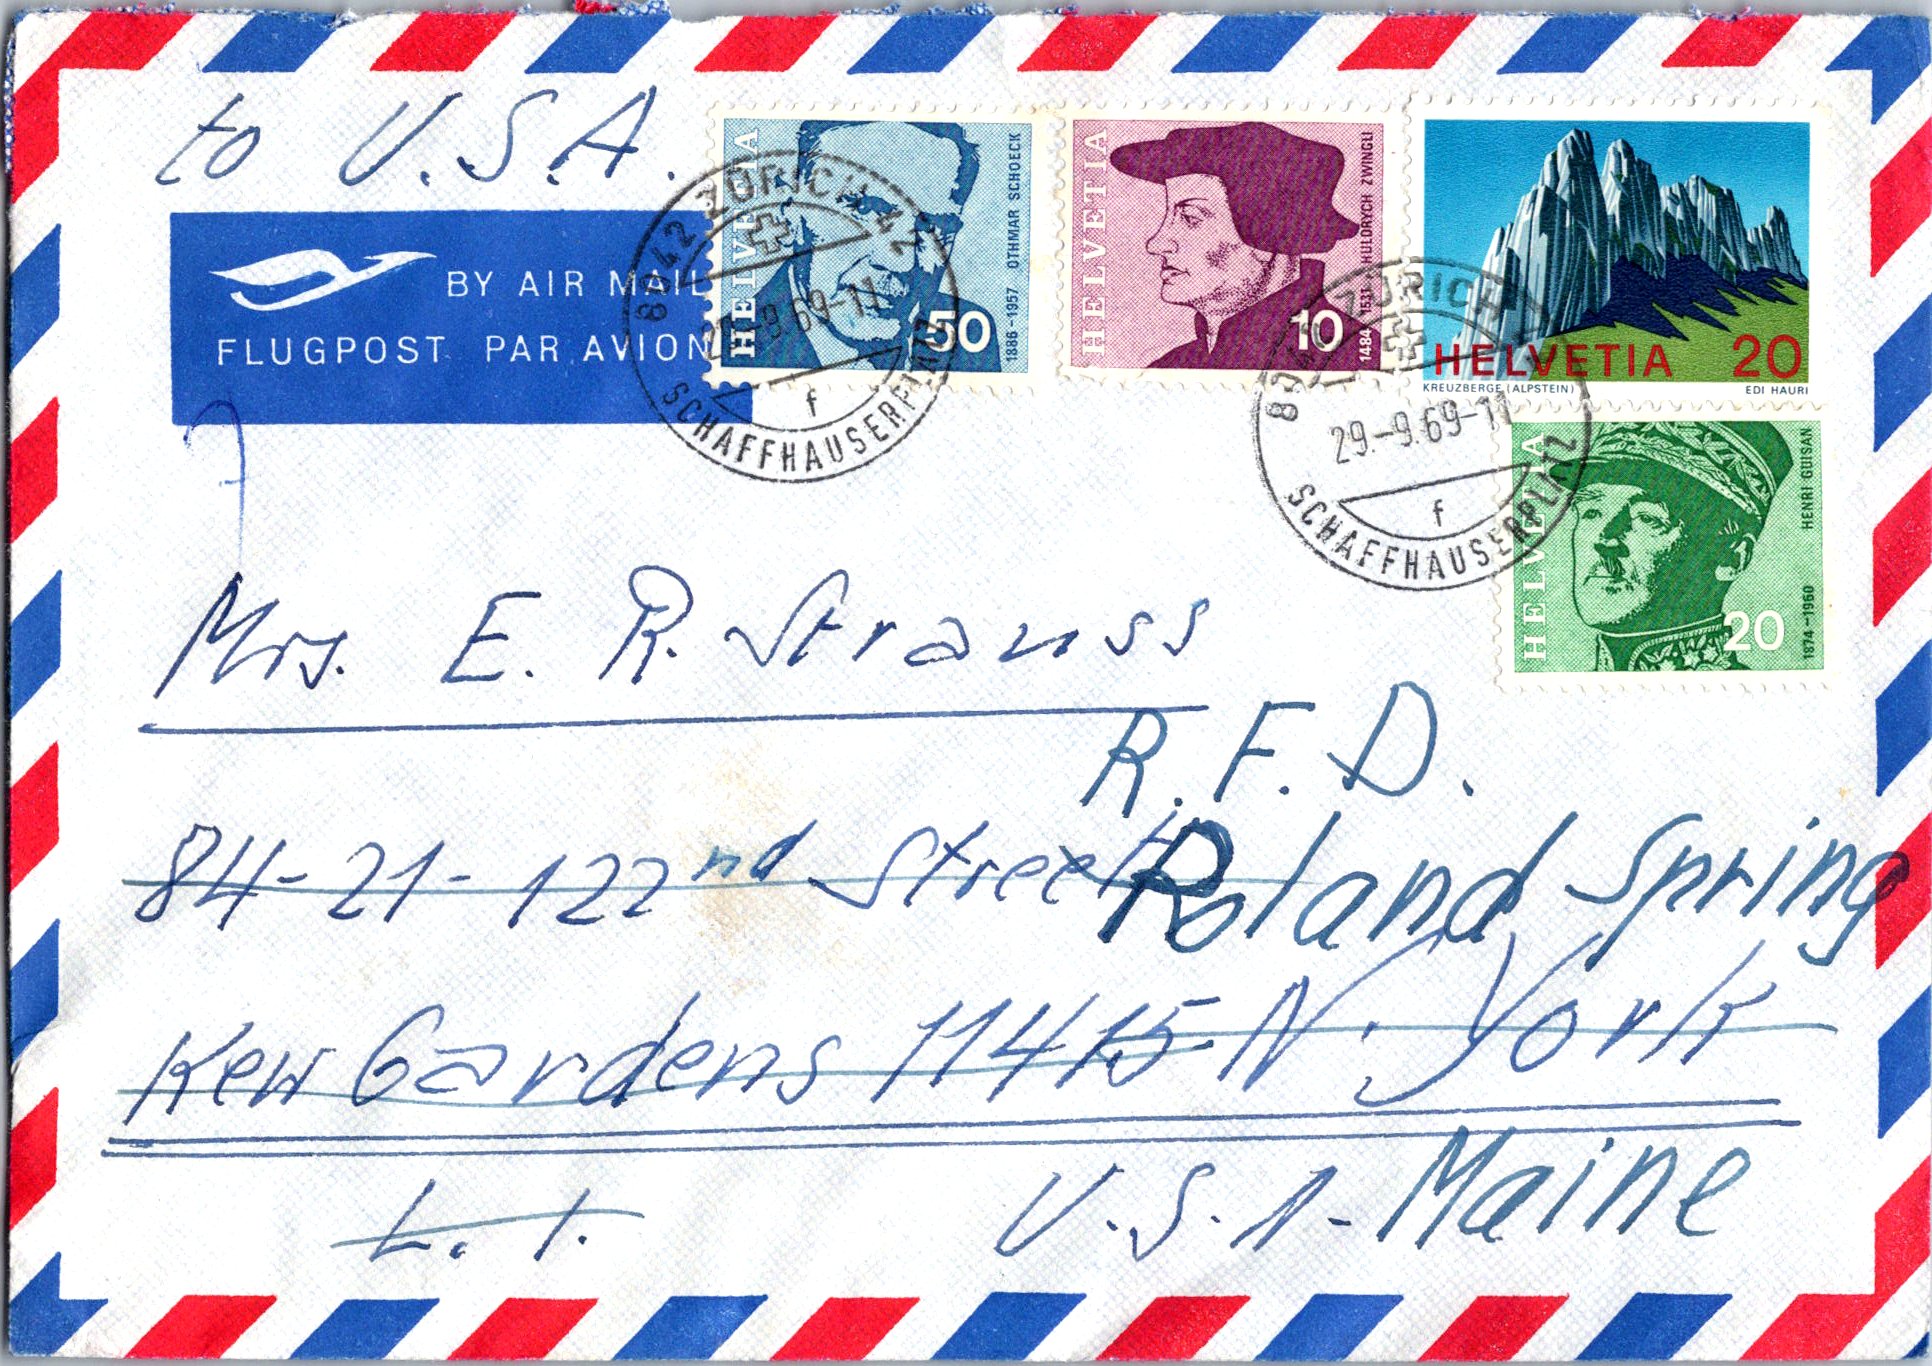 to U.S.A.
BY AIR MAIL
FLUGPOST PAR AVION
HELVETIA
OTHMAR SCHOECK
1886-1957
50
HELVETIA
HULDRYCH ZWINGLI
1484-1531
10
HELVETIA 20
KREUZBERGE (ALPSTEIN) EDI HAURI
HELVETIA
HENRI GUISAN
1874-1960
20
8042 ZÜRICH 42
29.-9.69-11
f
SCHAFFHAUSERPLATZ
8042 ZÜRICH 42
29.-9.69-11
f
SCHAFFHAUSERPLATZ
Mrs. E. R. Strauss
R.F.D.
84-21-122nd Street
Poland Spring
Kew Gardens 11415 N. York
L.I. U.S.A. Maine